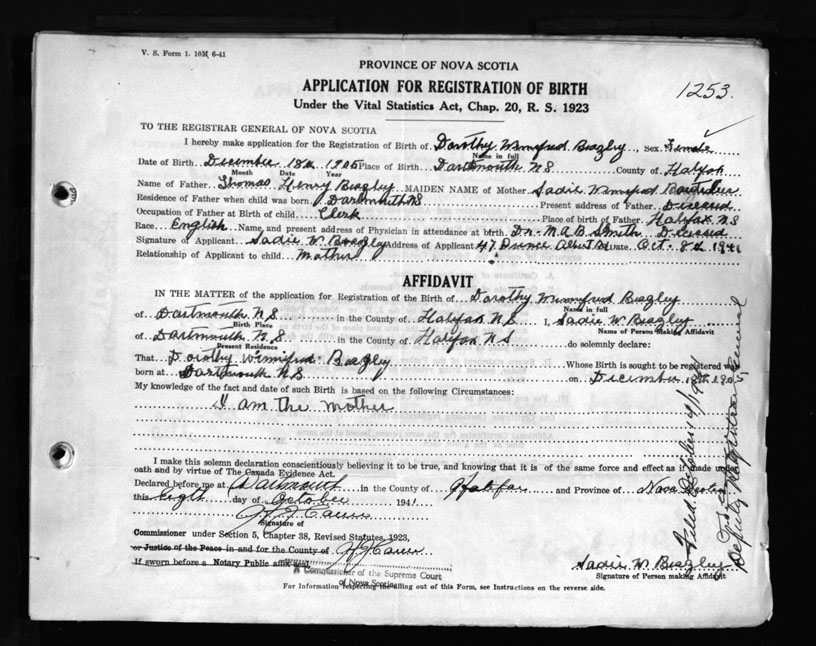 V. S. Form 1. 10M 6-41
PROVINCE OF NOVA SCOTIA
APPLICATION FOR REGISTRATION OF BIRTH
1253.
Under the Vital Statistics Act, Chap. 20, R. S. 1923
TO THE REGISTRAR GENERAL OF NOVA SCOTIA
I hereby make application for the Registration of Birth of Dorothy Winnifred Beazley, Sex Female
Name in full
Date of Birth December 18th 1905 Place of Birth Dartmouth N S County of Halifax
Month Date Year
Name of Father Thomas Henry Beazley MAIDEN NAME of Mother Sadie Winnifred
Residence of Father when child was born Dartmouth N S Present address of Father Diseased
Occupation of Father at Birth of child Clerk Place of birth of Father Halifax N S
Race English Name, and present address of Physician in attendance at birth Dr. M. A. B. Smith Diceased
Signature of Applicant Sadie W. Beazley Address of Applicant 47 Prince Albert Date Oct. 8th 1941
Relationship of Applicant to child Mother
AFFIDAVIT
IN THE MATTER of the application for Registration of the Birth of Dorothy Winnifred Beazley
Name in full
of Dartmouth N S in the County of Halifax N S I, Sadie W. Beazley
Birth Place Name of Person Making Affidavit
of Dartmouth N S in the County of Halifax N S do solemnly declare:
Present Residence
That Dorothy Winnifred Beazley Whose Birth is sought to be registered was
born at Dartmouth N S on December 18th 190
My knowledge of the fact and date of such Birth is based on the following Circumstances:
I am the mother
I make this solemn declaration conscientiously believing it to be true, and knowing that it is of the same force and effect as if made under
oath and by virtue of The Canada Evidence Act.
Declared before me at Dartmouth in the County of Halifax and Province of Nova Scotia
this eigth day of October 1941
Signature of
Commissioner under Section 5, Chapter 38, Revised Statutes, 1923,
or Justice of the Peace in and for the County of
If sworn before a Notary Public affix
A Commissioner of the Supreme Court
of Nova Scotia
Sadie W Beazley
Signature of Person making Affidavit
For Information respecting the filling out of this Form, see Instructions on the reverse side.
Filed October 1941
Deputy Registrar General